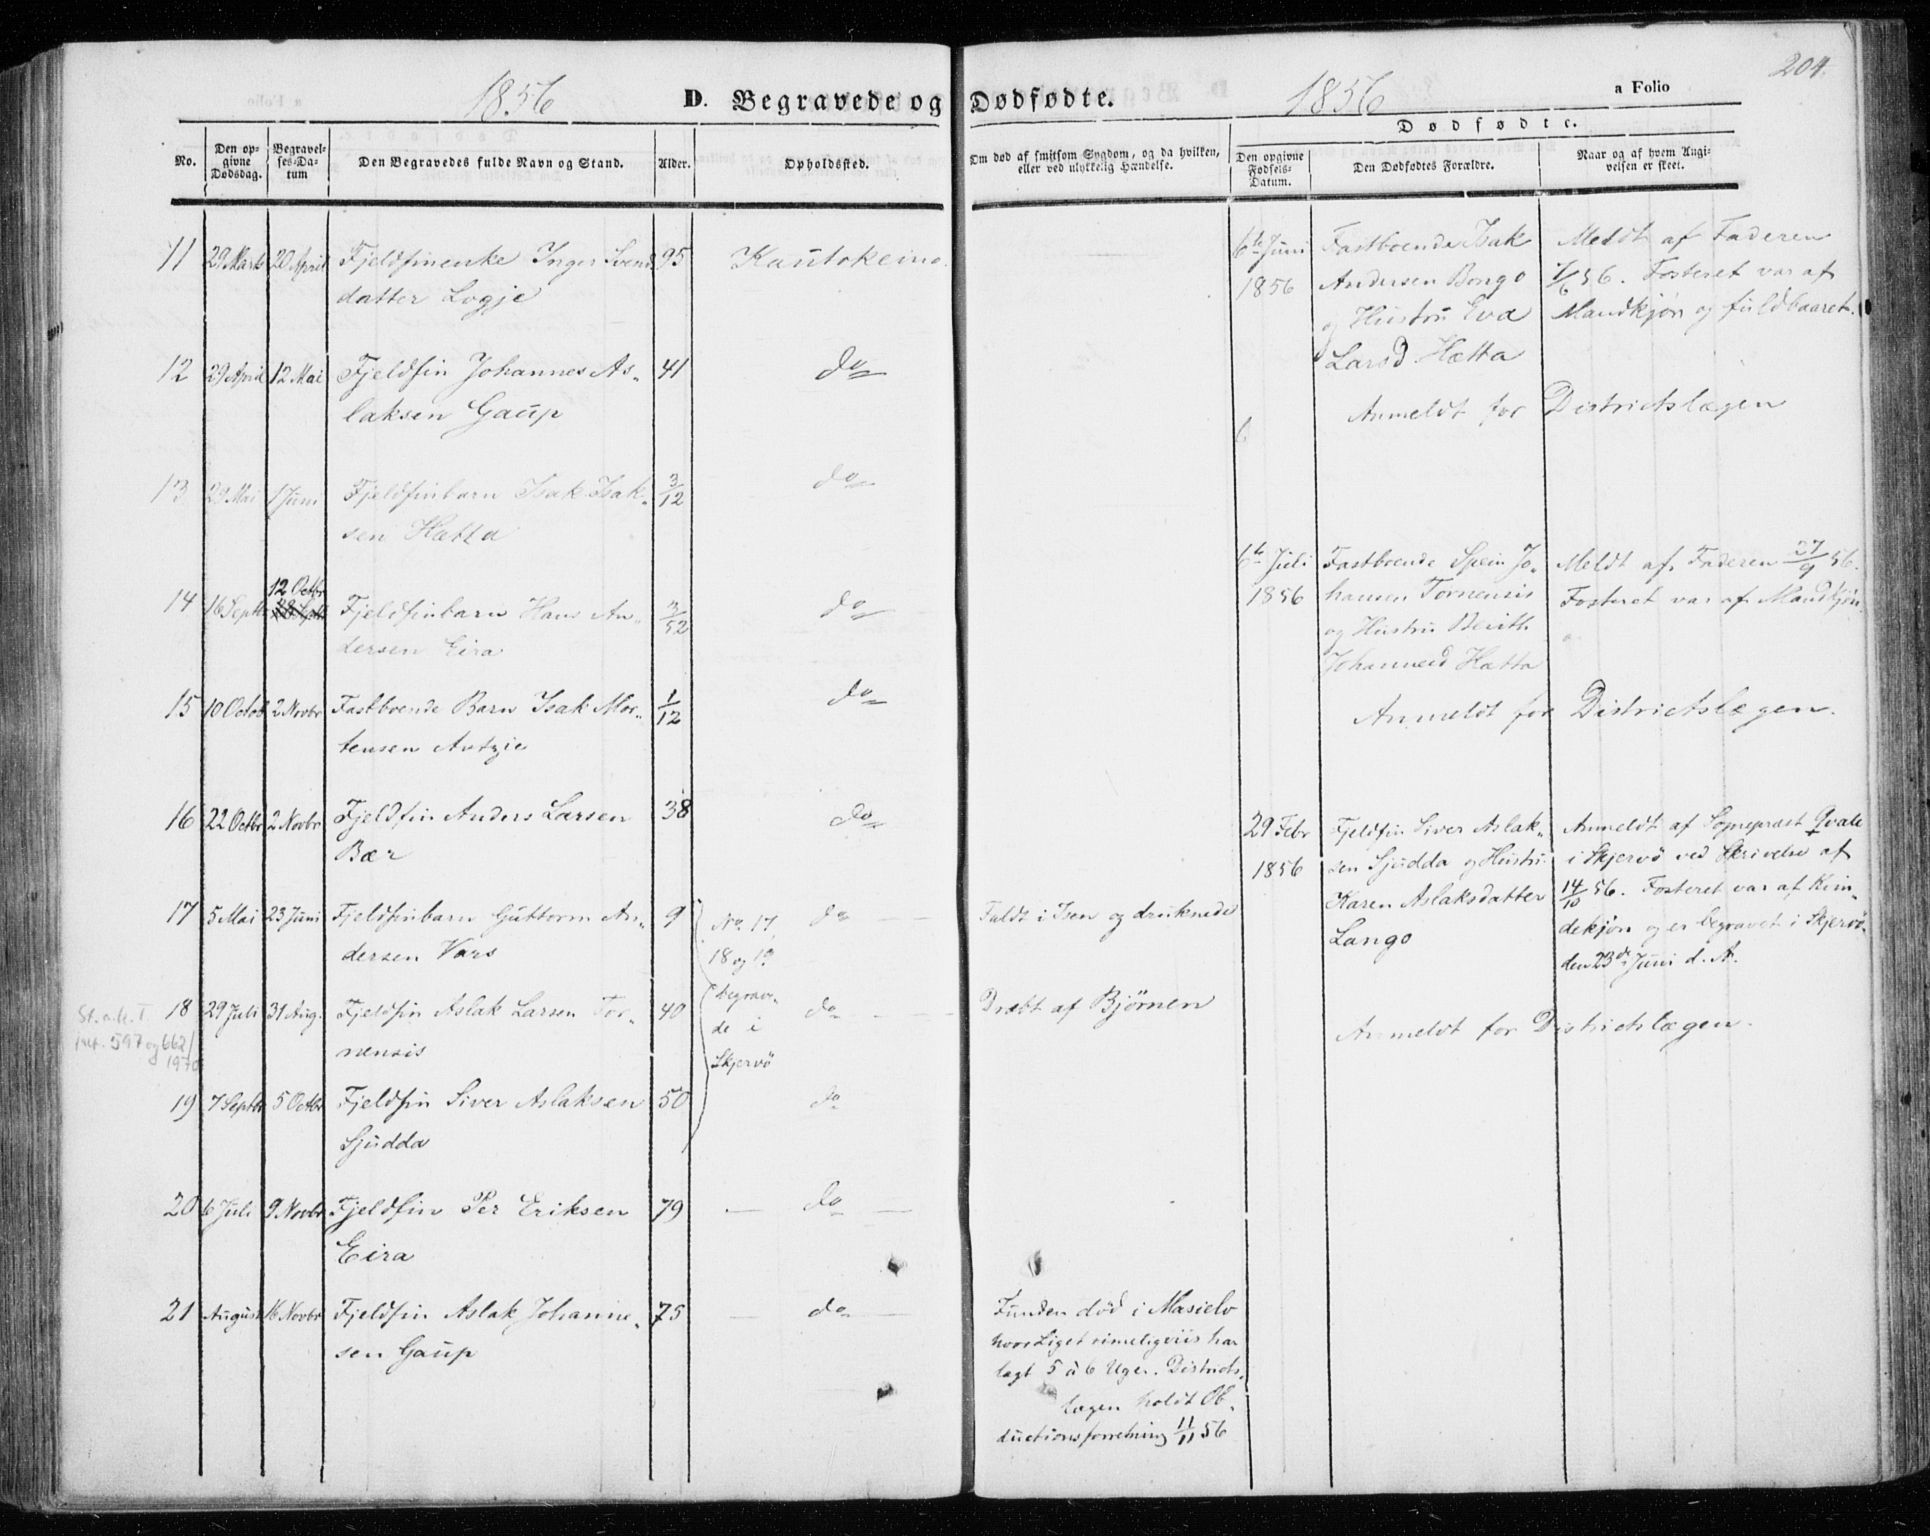 204.
1856
D. Begravede og Dødfødte.
1856
a Folio
Dødfødte.
No.
Den op-
givne
Dødsdag.
Begravel-
ses-Da-
tum
Den Begravedes fulde Navn og Stand.
Alder.
Opholdssted.
Om død af smitsom Sygdom, og da hvilken,
eller ved ulykkelig Hændelse.
Den opgivne
Fødsels-
Datum.
Den Dødfødtes Forældre.
Naar og af hvem Angi-
velsen er skeet.
11 29 Marts 20 April Fjeldfinenke Inger Svends 95 Kautokeino.
datter Logje
12 29 April 12 Mai Fjeldfin Johannes As- 41 do
laksen Gaup
13 29 Mai 1 Juni Fjeldfinbarn Isak Isak- 3/12 do
sen Hætta
12 Octbr
14 16 Septb 28 Septb Fjeldfinbarn Hans An- 3/52 do
dersen Eira
15 10 Octob 2 Novbr Fastboende Barn Isak Mor- 1/12 do
tensen Antzie
16 22 Octbr 2 Novbr Fjeldfin Anders Larsen 38 do
Bær
17 5 Mai 23 Juni Fjeldfinbarn Guttorm An- 9 do Faldt i Isen og druknede
dersen Vars
No 17,
18 og 19
begrav-
de i
Skjervö
18 29 Juli 31 Aug. Fjeldfin Aslak Larsen Tor- 40 do Dræbt af Bjørnen
nensis
St. a. k. T.
597 og 662/
1970
19 7 Septbr 5 Octbr Fjeldfin Siver Aslaksen 50 do
Sjudda
20 6 Juli 9 Novbr Fjeldfin Per Eriksen 79 do
Eira
21 August 16 Novbr Fjeldfin Aslak Johanne- 75 do
sen Gaup
Funden död i Masielv
hvor Liget rimeligviis har
lagt 5 à 6 Uger. Districts-
lægen holdt Ob-
ductionsforretning 11/11 56
6te Juni
1856
Fastboende Isak
Andersen Bongo
og Hustru Eva
Larsd Hætta
Meldt af Faderen
7/6 56. Fosteret var af
Mandkjön og fuldbaaret.
Anmeldt for Districtslægen
6
6te Juli
1856
Fastboende Spein Jo-
hansen Tornensis
og Hustru Berith
Johannesd Hætta
Meldt af Faderen 27/9 56.
Fosteret var af Mandkjön
Anmeldt for Districtslægen.
29 Febr
1856
Fjeldfin Siver Aslak-
sen Sjudda og Hustru
Karen Aslaksdatter
Lango
Anmeldt af Sognepræst Qvale
i Skjervö ved Skrivelse af
14/10 56. Fosteret var af Kvin-
dekjön og er begravet i Skjervö
den 23de Juni d. A.
Anmeldt for Districtslægen.